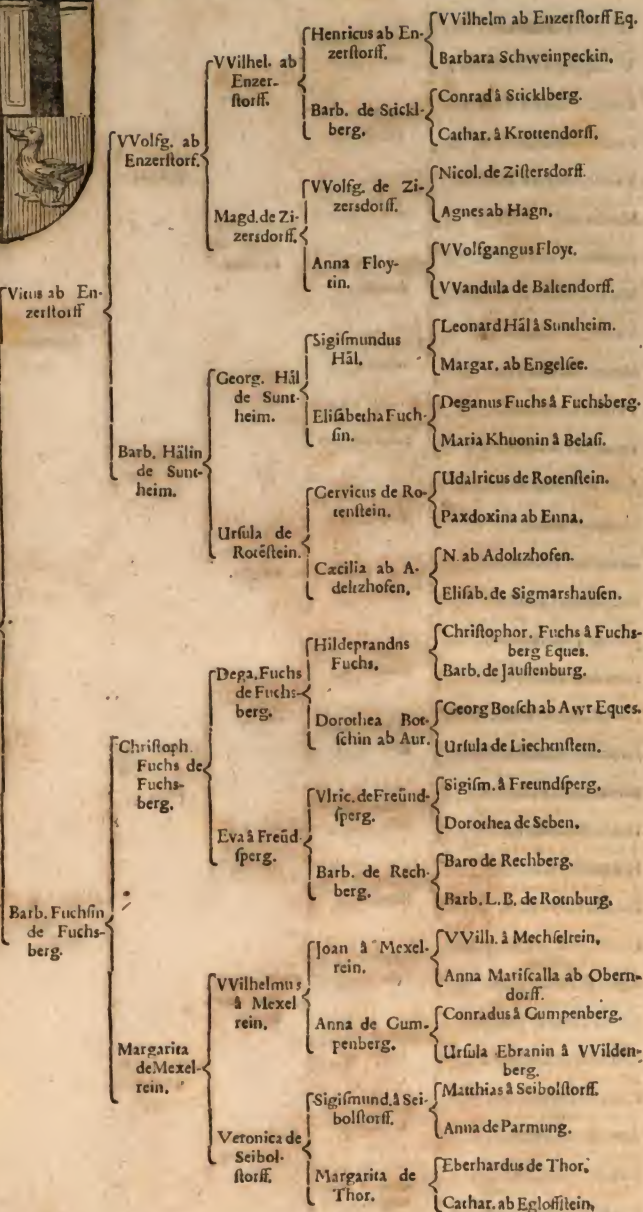 Vitus ab En-
zerſtorff
Barb. Fuchſin
de Fuchs-
berg.
VVolfg. ab
Enzerſtorf.
Barb. Hälin
de Sunt-
heim.
Chriſtoph.
Fuchs de
Fuchs-
berg.
Margarita
de Mexel-
rein.
VVilhel. ab
Enzer-
ſtorff.
Magd. de Zi-
zersdorff.
Georg. Häl
de Sunt-
heim.
Urſula de
Rotēſtein.
Dega. Fuchs
de Fuchs-
berg.
Eva â Freūd
ſperg.
VVilhelmus
â Mexel
rein.
Veronica de
Seibol-
ſtorff.
Henricus ab En-
zerſtorff.
Barb. de Stickl-
berg.
VVolfg. de Zi-
zersdorff.
Anna Floy-
tin.
Sigiſmundus
Häl.
Eliſabetha Fuch-
ſin.
Gervicus de Ro-
tenſtein.
Cæcilia ab A-
deltzhofen.
Hildeprandns
Fuchs.
Dorothea Bot-
ſchin ab Aur.
Vlric. de Freünd-
ſperg.
Barb. de Rech-
berg.
Joan â Mexel-
rein.
Anna de Gum-
penberg.
Sigiſmund. â Sei-
bolſtorff.
Margarita de
Thor.
VVilhelm ab Enzerſtorff Eq.
Barbara Schweinpeckin.
Conrad â Sticklberg.
Cathar. â Krottendorff.
Nicol. de Ziſtersdorff.
Agnes ab Hagn.
VVolfgangus Floyt.
VVandula de Baltendorff.
Leonard Häl â Suntheim.
Margar. ab Engelſee.
Deganus Fuchs â Fuchsberg.
Maria Khuonin â Belaſi.
Udalricus de Rotenſtein.
Paxdoxina ab Enna.
N. ab Adoltzhofen.
Eliſab. de Sigmarshauſen.
Chriſtophor. Fuchs â Fuchs-
berg Eques.
Barb. de Jauffenburg.
Georg Botſch ab Awr Eques.
Urſula de Liechenſtein.
Sigiſm. â Freundſperg.
Dorothea de Seben.
Baro de Rechberg.
Barb. L. B. de Rotnburg.
VVilh. â Mechſelrein.
Anna Mariſcalla ab Obern-
dorff.
Conradus â Gumpenberg.
Urſula Ebranin â VVilden-
berg.
Matthias â Seibolſtorff.
Anna de Parmung.
Eberhardus de Thor.
Cathar. ab Egloffſtein.